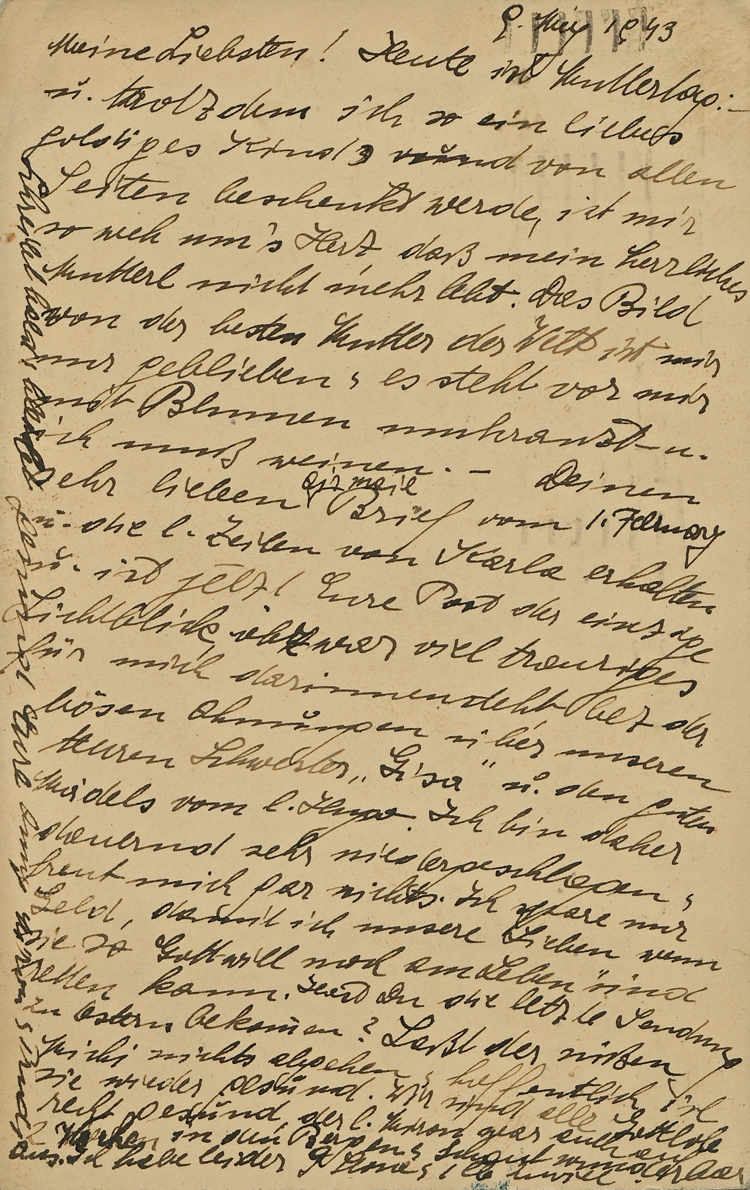 9. May 1943
Meine Liebsten! Heute ist Muttertag:-
u. trotzdem ich so ein liebes
goldiges Kind und von allen
Seiten beschenkt werde, ist mir
so weh um's Herz daß mein herzliches
Mutterl nicht mehr lebt. Das Bild
von der besten Mutter der Welt ist mir
nur geblieben, es steht vor mir
mit Blumen umkranzt u.
ich muß weinen. - Deinen
sehr lieben air mail Brief vom 1. February
u. die l. Zeilen von Karla erhalten
u. ist jetzt Eure Post der einzige
Lichtblick obzwar viel trauriges
für mich darinnen steht bez der
bösen Ahnungen über unseren
teuren Schwester „Gisa" u. den guten
Mädels vom l. Hugo. Ich bin daher
dauernd sehr niedergeschlagen,
freut mich gar nichts. Ich spare nur
Geld, damit ich unsere Lieben wenn
sie so Gott will noch am Leben sind
retten kann. Hast Du die letzte Sendung
zu Ostern bekommen? Laßt der süßen
Michi nichts abgehen, hoffentlich ist
sie wieder gesund. Wir sind alle Gottlob
recht gesund, der l. war auch auf
Wochen in den Bergen,
aus. Ich habe leider
Schreibt bald Eure